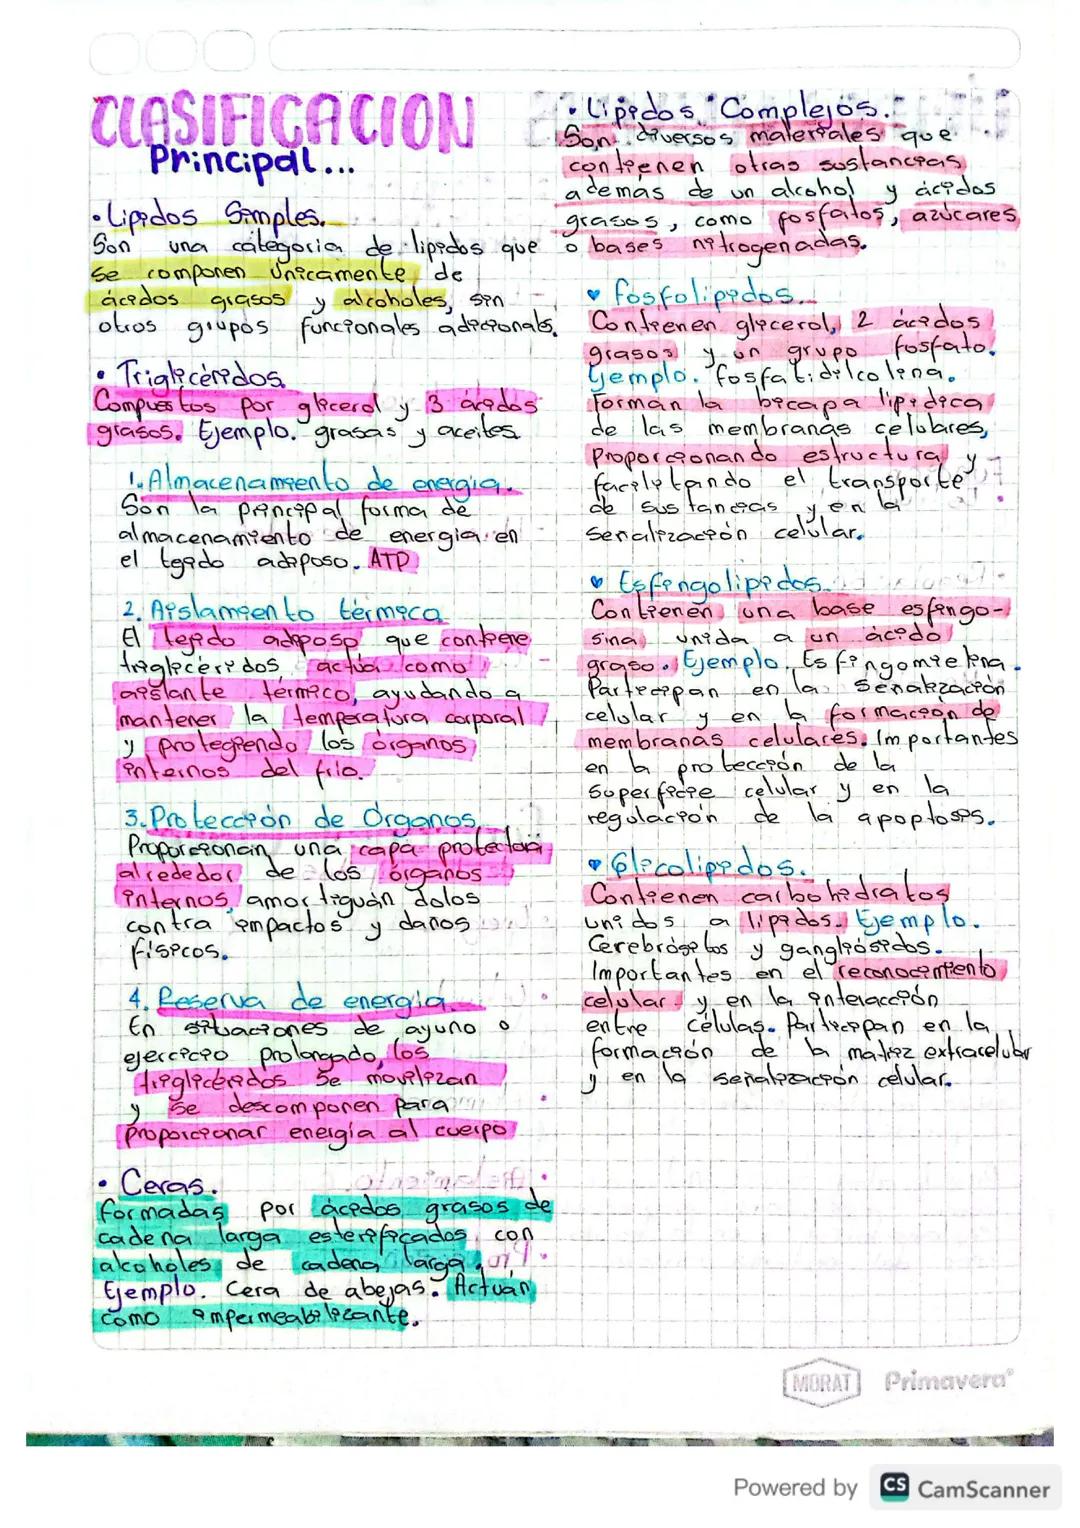 CLASIFICACION
Principal...
• Lipidos Simples.
Son una categoria de lipidos que
se componen únicamente de
ácidos grasos y alcoholes, sin
otros grupos funcionales adicionales.
• Triglicéridos.
Compuestos por glicerol y 3 ácidos
grasos. Ejemplo. grasas y aceites
1. Almacenamiento de energia.
Son la principal forma de
almacenamiento de energia en
el tejido adiposo. ATP
2. Aislamiento térmico
El tejido adiposo que contiene
trigliceridos actúa como
aislante térmico, ayudando a
mantener la temperatura corporal
y protegiendo los órganos
internos del frio.
3. Protección de Organos.
Proporcionan una capa protectora
alrededor de los órganos
internos amortiguándolos
contra impactos y daños
físicos.
4. Reserva de energia.
En situaciones de ayuno o
ejercicio prolongado, los
triglicéridos se movilizan
y se descomponen para
proporcionar energía al cuerpo
• Ceras.
formadas por ácidos grasos de
cadena larga esterificados con
alcoholes de cadena larga.
Ejemplo. Cera de abejas. Actúan
como impermeabilizante.
• Lipidos Complejos.
Son diversos materiales que
contienen otras sustancias
además de un alcohol y ácidos
grasos, como fosfatos, azúcares
o bases nitrogenadas.
♥ fosfolipidos.
Contienen glicerol, 2 ácidos
grasos y un grupo fosfato.
Ejemplo. fosfatidilcolina.
forman la bicapa lipidica
de las membranas celulares,
proporcionando estructura y
facilitando el transporte
de sustancias y en la
señalización celular.
♥ Esfingolipidos.
Contienen una base esfingo-
sina unida a un ácido
graso. Ejemplo. Esfingomielina.
Participan en la señalización
celular y en la formación de
membranas celulares. Importantes
en la protección de la
superficie celular y en la
regulación de la apoptosis.
♥ Glicolipidos.
Contienen carbohidratos
unidos a lipidos. Ejemplo.
Cerebrósidos y gangliósidos.
Importantes en el reconocimiento
celular y en la interacción
entre células. Participan en la
formación de la matriz extracelular
y en la señalización celular.
MORAT Primavera®
Powered by CS CamScanner